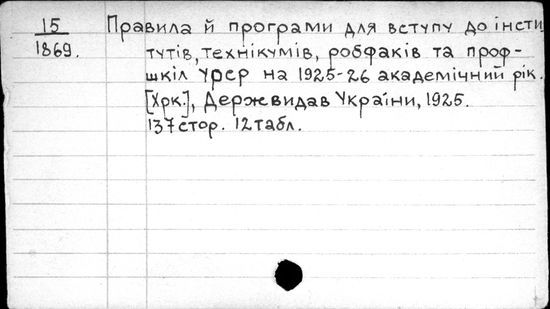 15
1869.
Правила й програми для вступу до інсти
тутів, технікумів, робфаків та проф-
шкіл УРСР на 1925-26 академічний рік.
[Хрк.], Держвидав України, 1925.
137 стор. 12 табл.